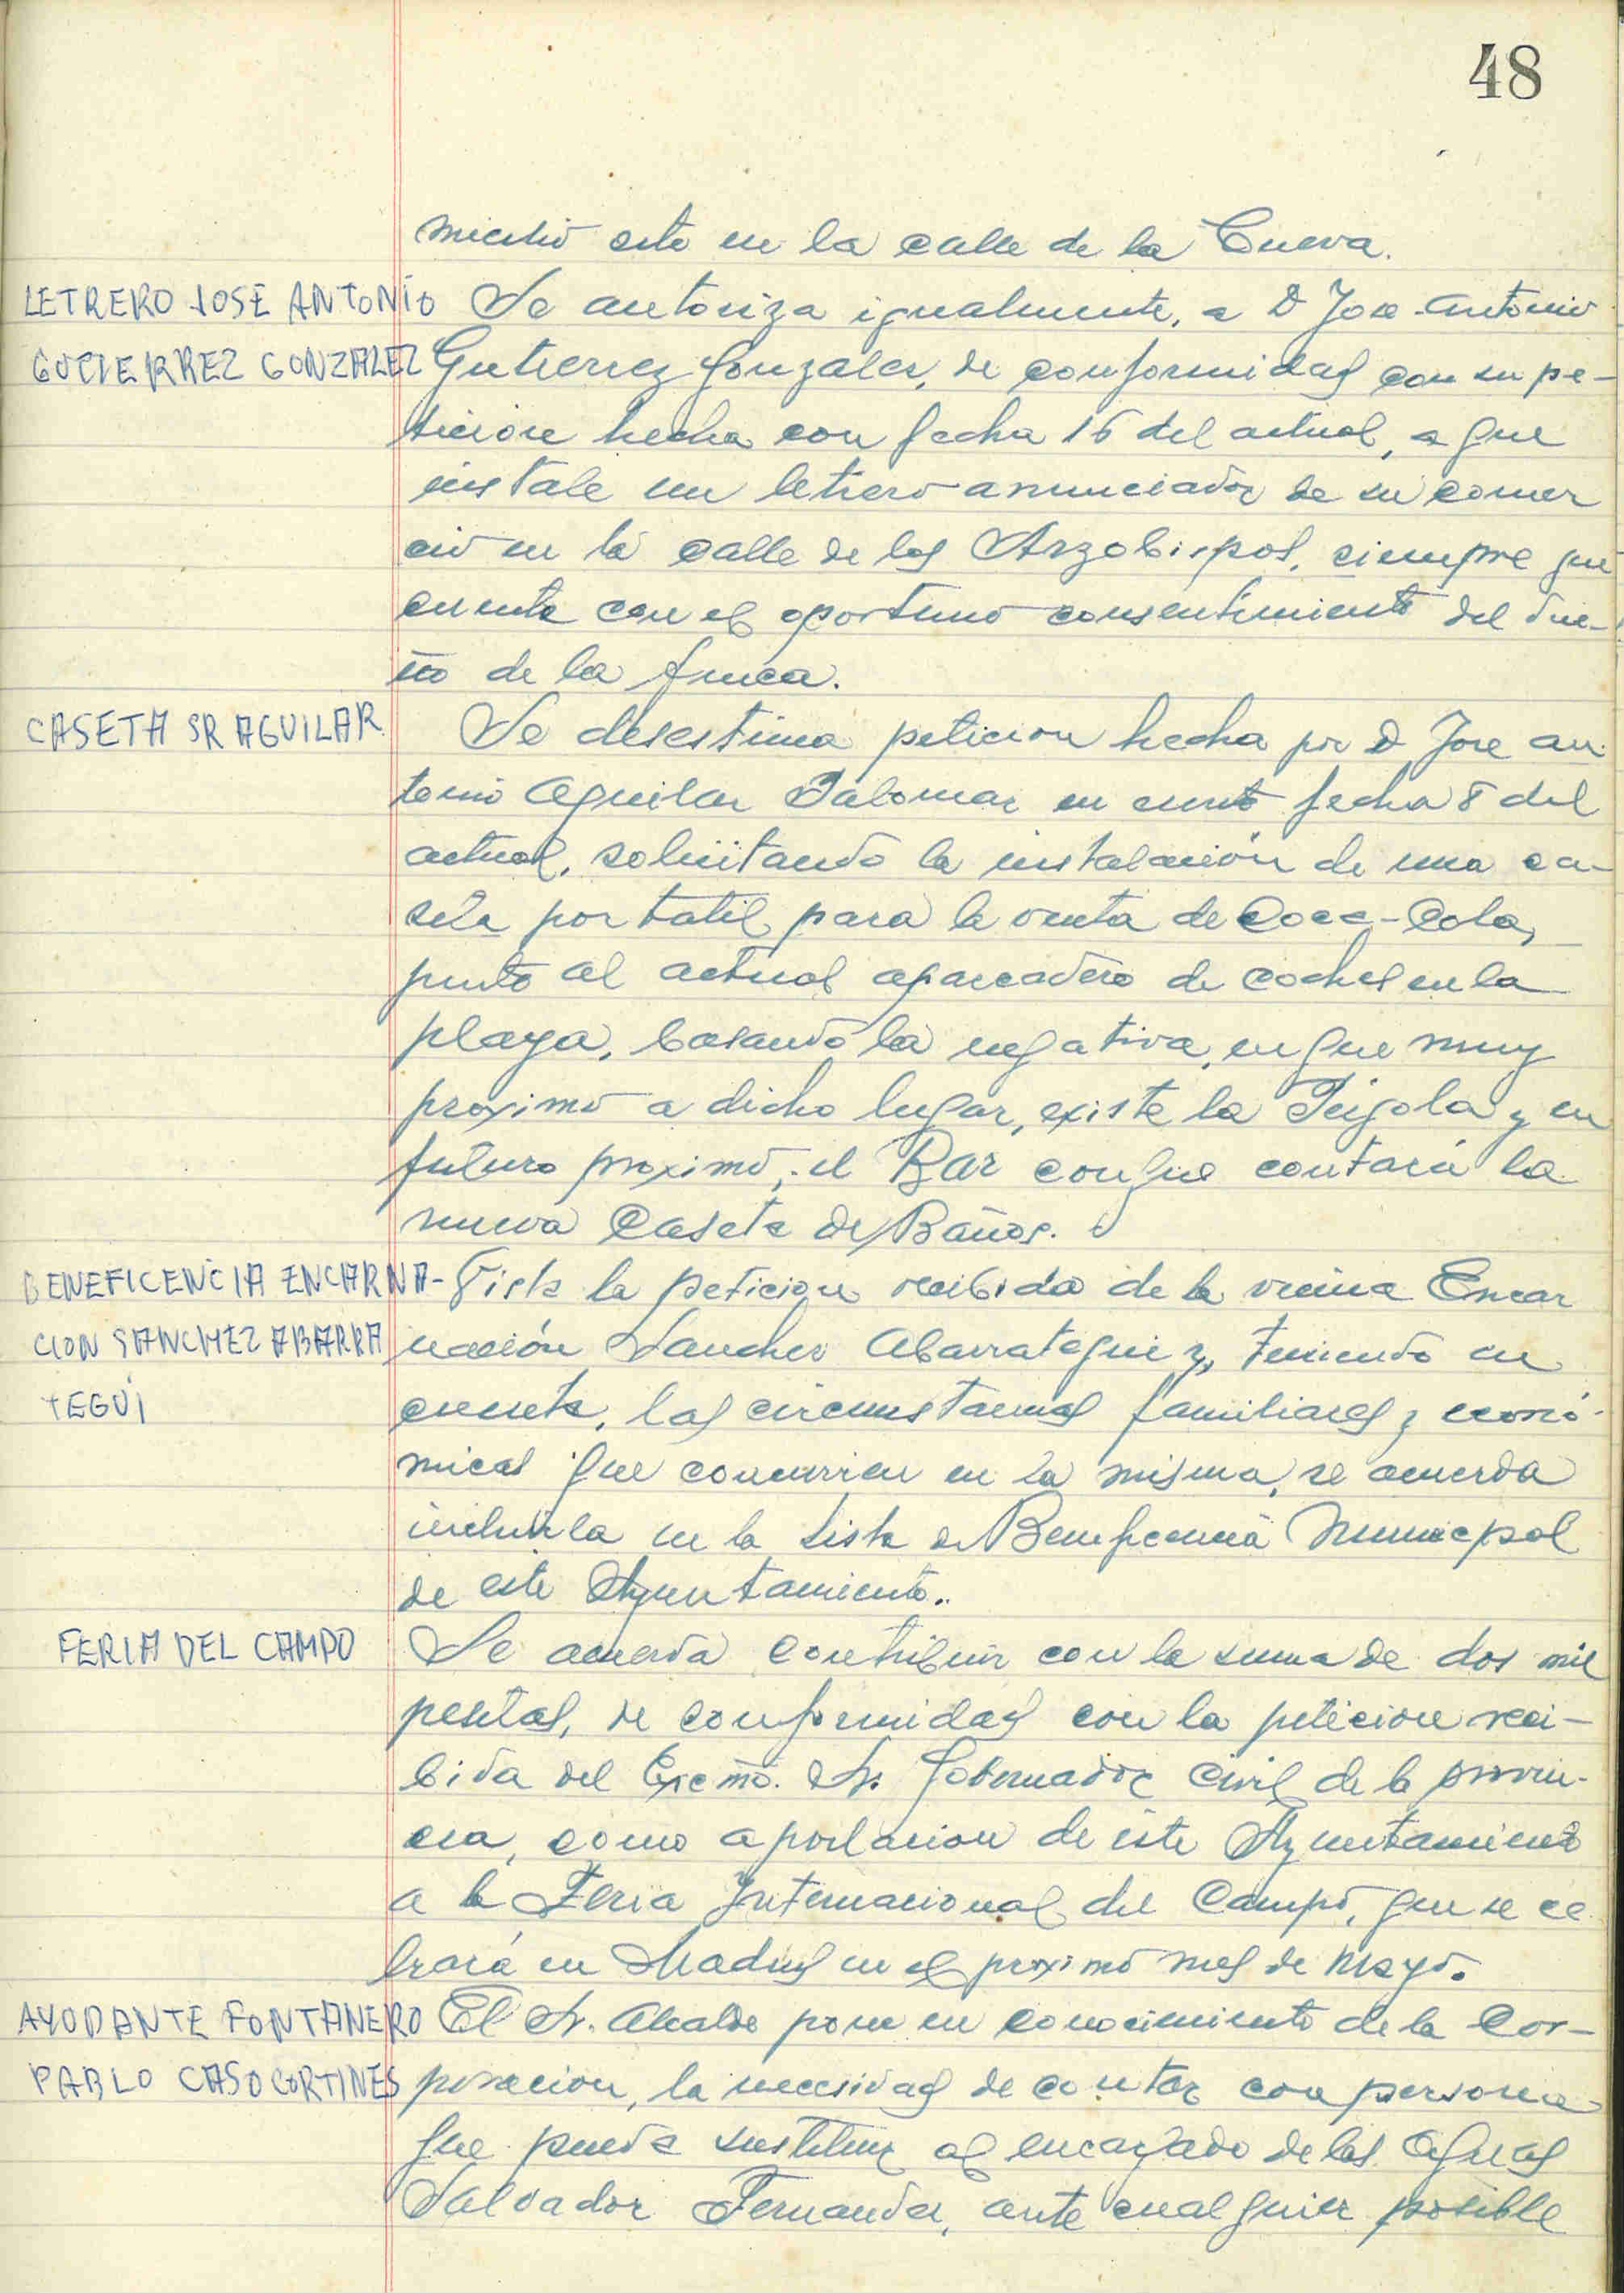 48
miento sito en la calle de la Cueva.
LETRERO JOSE ANTONIO Se autoriza igualmente, a D Jose Antonio
GUTIERREZ GONZALEZ Gutierrez Gonzalez, de conformidad con su pe-
ticion hecha con fecha 16 del actual, a que
instale un letrero anunciador de su comer
cio en la calle de los Arzobispos, siempre que
cuente con el oportuno consentimiento del due-
ño de la finca.
CASETA SR AGUILAR Se desestima peticion hecha por D Jose an
tonio Aguilar Palomar en escrito fecha 8 del
actual, solicitando la instalación de una ca-
seta portatil para la venta de Coca-Cola,
junto al actual aparcadero de coches en la
playa, basando la negativa, en que muy
proximo a dicho lugar, existe la Pergola y en
futuro proximo, el Bar con que contará la
nueva Caseta de Baños.
BENEFICENCIA ENCARNA- Vista la peticion recibida de la vecina Encar
CION SANCHEZ ABARRA nación Sanchez Abarrategui y, teniendo en
TEGUI cuenta, las circunstancias familiares y econó-
micas que concurren en la misma, se acuerda
incluirla en la Lista de Beneficencia Municipal
de este Ayuntamiento..
FERIA DEL CAMPO Se acuerda contribuir con la suma de dos mil
pesetas, de conformidad con la peticion reci-
bida del Excmo. Sr. Gobernador Civil de la provin-
cia, como aportacion de este Ayuntamiento
a la Feria Internacional del Campo, que se ce
brará en Madrid en el proximo mes de Mayo.
AYUDANTE FONTANERO El Sr. Alcalde pone en conocimiento de la Cor-
PABLO CASO CORTINES poracion, la necesidad de contar con persona
que pueda sustituir al encargado de las aguas
Salvador Fernandez, ante cualquier posible